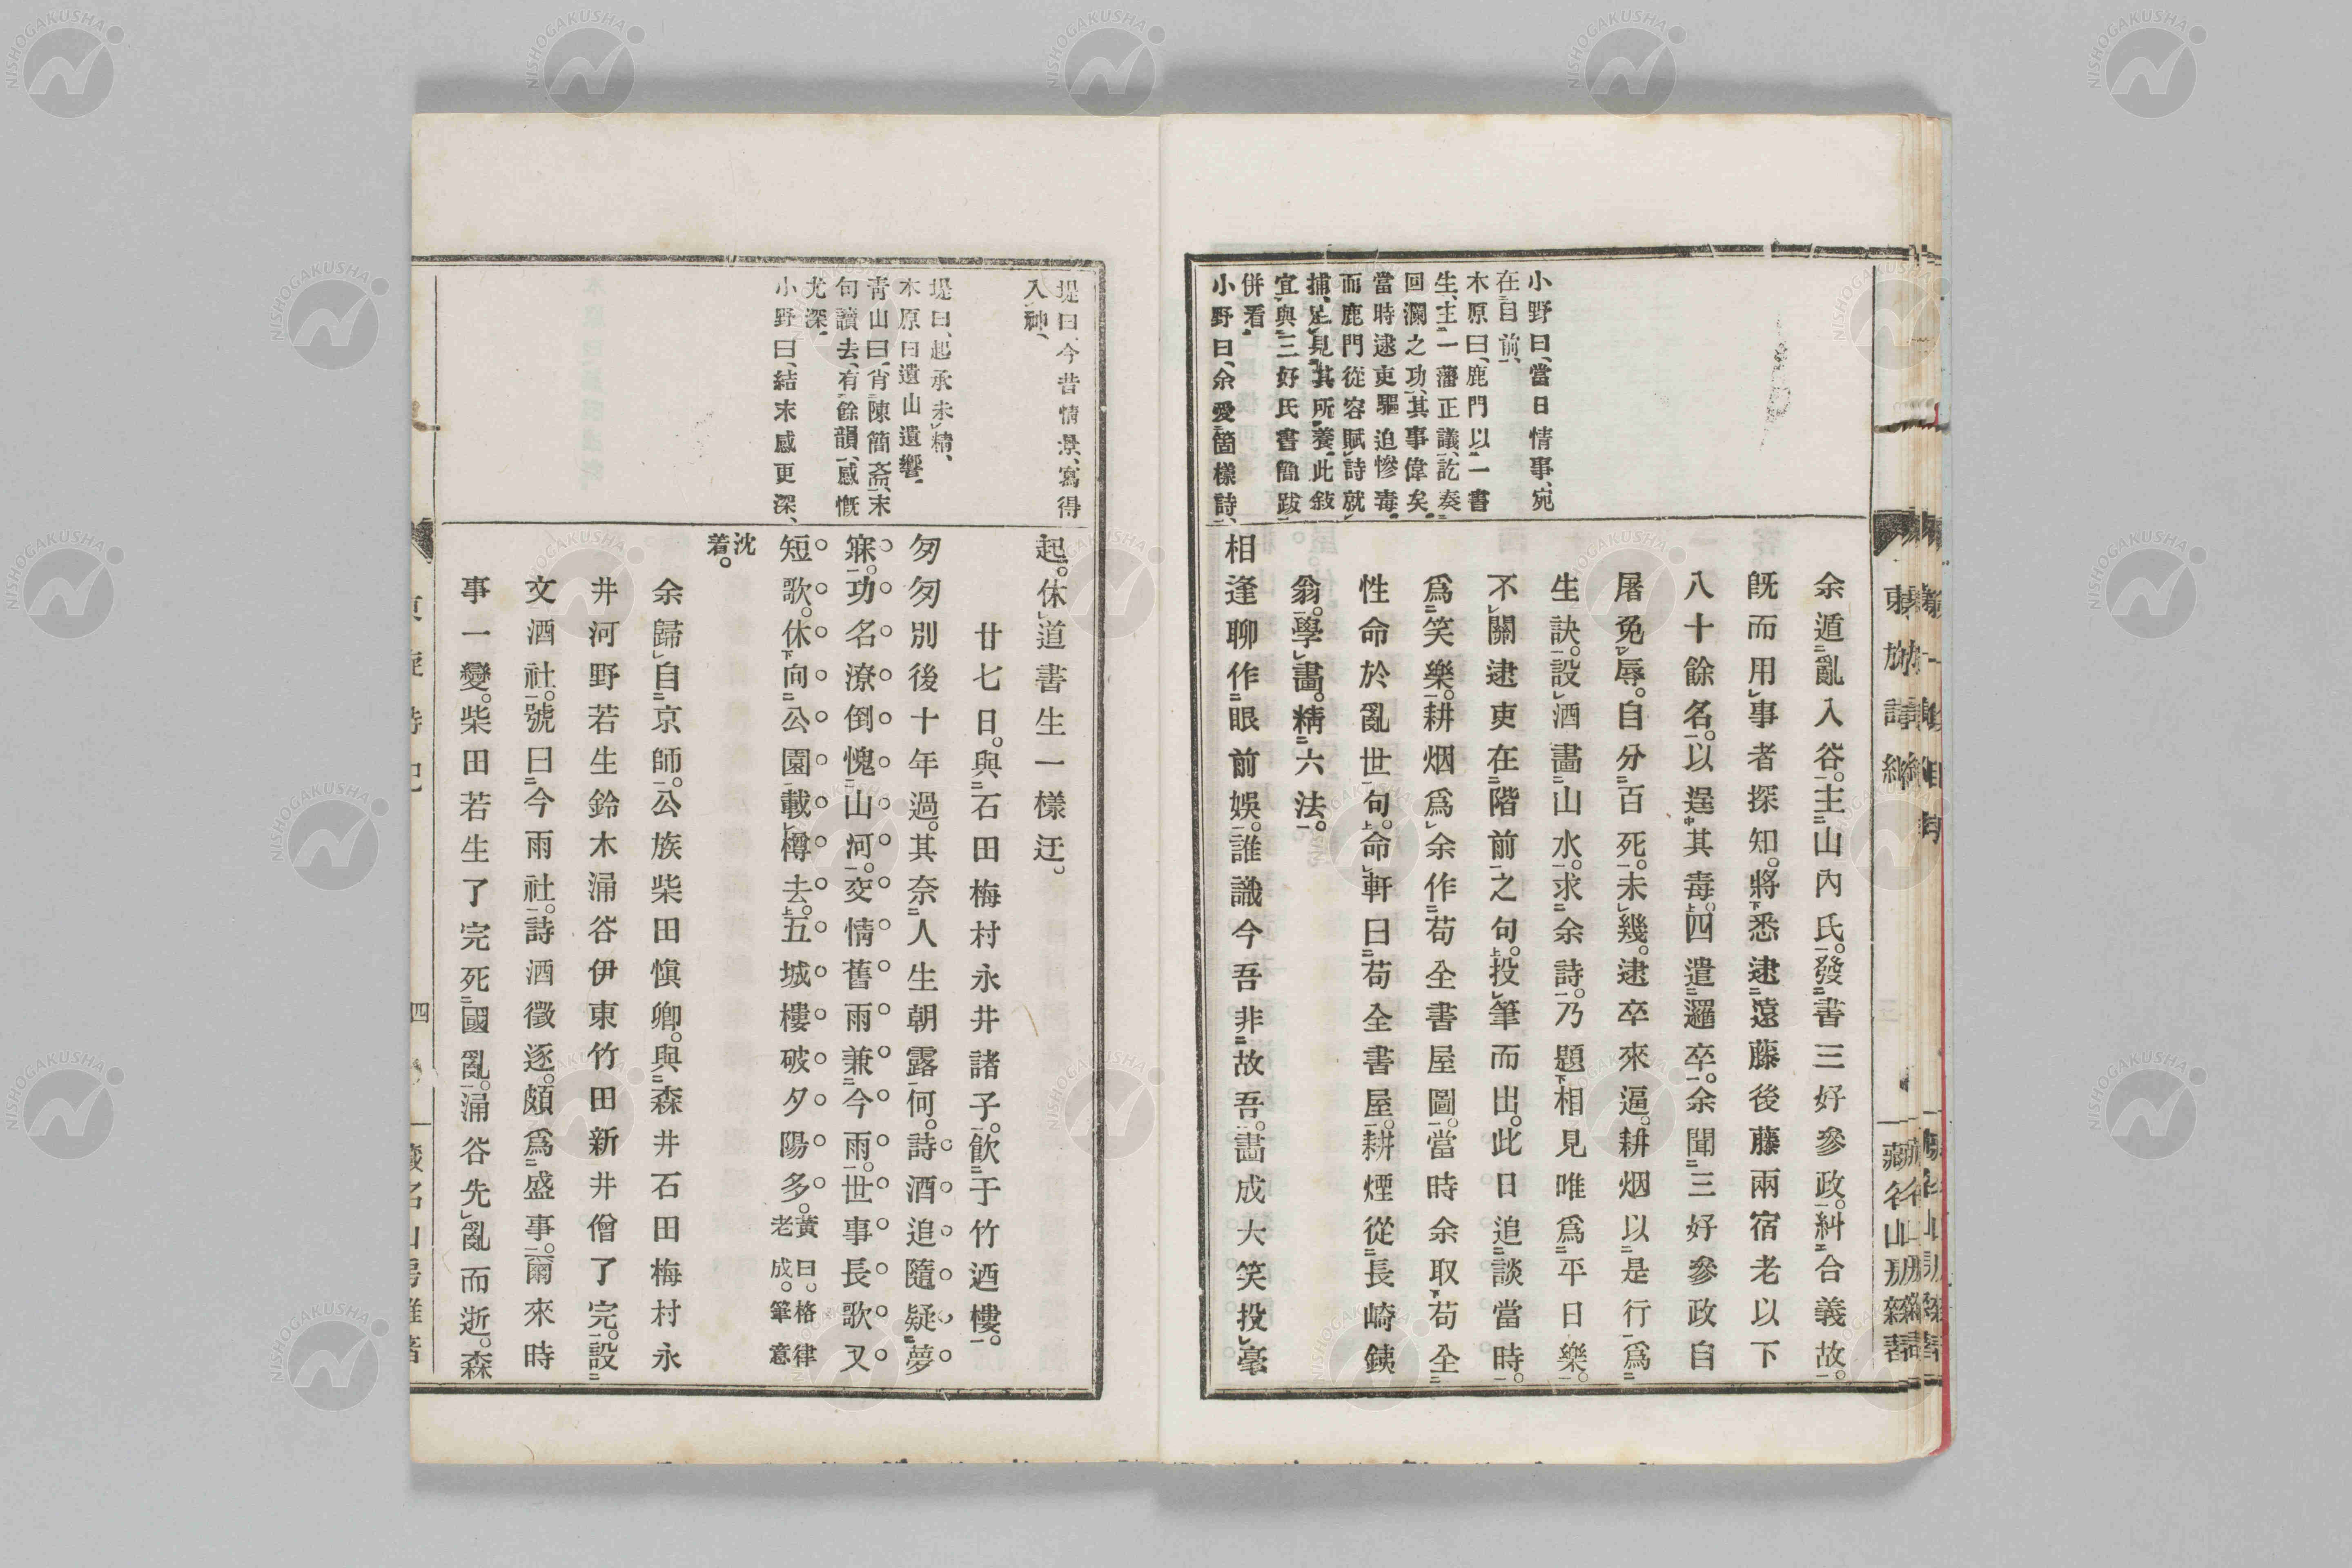 小野曰、當日情事、宛
在目前、
木原曰、鹿門以一書
生、主一藩正議、訖奏
回瀾之功、其事偉矣。
當時逮吏驅迫慘毒。
而鹿門從容賦詩就
捕、足見其所養。此敍
宜與三好氏書簡跋
併看。
小野曰、余愛箇樣詩、
余遁亂入谷。主山內氏。發書三好參政。糾合義故。
既而用事者探知。將悉逮遠藤後藤兩宿老以下
八十餘名。以逞其毒。四遣邏卒。余聞三好參政自
屠免辱。自分百死。未幾。逮卒來逼。耕烟以是行爲
生訣。設酒畵山水。求余詩。乃題相見唯爲平日樂。
不關逮吏在階前之句。投筆而出。此日追談當時。
爲笑樂。耕烟爲余作苟全書屋圖。當時余取苟全
性命於亂世句。命軒曰苟全書屋。耕煙從長崎銕
翁。學畵。精六法。
相逢聊作眼前娛。誰識今吾非故吾。畵成大笑投毫
堤曰、今昔情景、寫得
入神、
堤曰、起承未精、
木原曰遺山遺響。
青山曰、肖陳簡齋、末
句讀去、有餘韻、感慨
尤深。
小野曰、結末感更深、
起。休道書生一樣迂。
廿七日。與石田梅村永井諸子。飮于竹迺樓。
匆匆別後十年過。其奈人生朝露何。詩酒追隨疑夢
寐。功名潦倒愧山河。交情舊雨兼今雨。世事長歌又
短歌。休向公園載樽去。五城樓破夕陽多。黃曰。格律
老成。筆意
沈
着。
余歸自京師。公族柴田愼卿。與森井石田梅村永
井河野若生鈴木涌谷伊東竹田新井僧了完。設
文酒社。號曰今雨社。詩酒徵逐。頗爲盛事。爾來時
事一變。柴田若生了完死國亂。涌谷先亂而逝。森
四